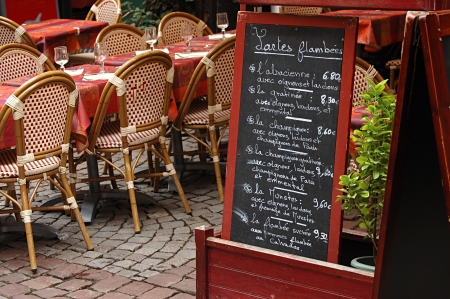 Tartes flambées
* l'alsacienne : 6.80
avec oignons et lardons
* la gratinée : 8.30€
avec oignons, lardons,
et emmental
* la champignons : 8.60€
avec oignons, lardons et
champignons de Paris
* la champignons gratinée :
avec oignons, lardons, 8,60€
champignons de Paris
et emmental
* la Munster : 9,60€
avec oignons, lardons
et fromage de Munster
* la flambée sucrée 9,30
aux pommes flambée
au Calvados.